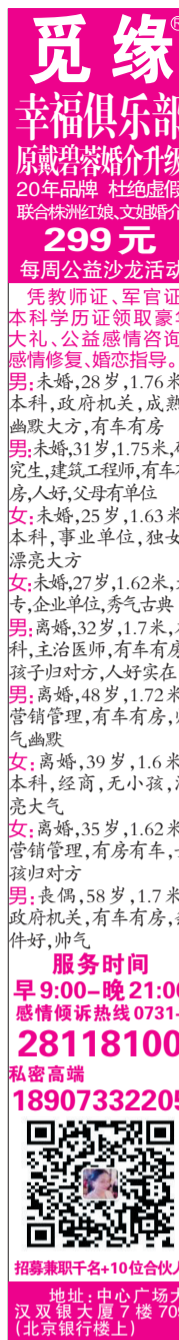 觅缘®
幸福俱乐部
原戴碧蓉婚介升级
20年品牌 杜绝虚假
联合株洲红娘、文姐婚介
299元
每周公益沙龙活动
凭教师证、军官证
本科学历证领取豪华
大礼、公益感情咨询
感情修复、婚恋指导。
男:未婚,28岁,1.76米
本科,政府机关,成熟
幽默大方,有车有房
男:未婚,31岁,1.75米,研
究生,建筑工程师,有车有
房,人好,父母有单位
女:未婚,25岁,1.63米
本科,事业单位,独女
漂亮大方
女:未婚,27岁,1.62米,
专,企业单位,秀气古典
男:离婚,32岁,1.7米,本
科,主治医师,有车有房
孩子归对方,人好实在
男:离婚,48岁,1.72米
营销管理,有车有房,帅
气幽默
女:离婚,39岁,1.6米
本科,经商,无小孩,漂
亮大气
女:离婚,35岁,1.62米
营销管理,有房有车,
孩归对方
男:丧偶,58岁,1.7米
政府机关,有车有房,条
件好,帅气
服务时间
早9:00-晚21:00
感情倾诉热线0731-
28118100
私密高端
18907332205
招募兼职千名+10位合伙人
地址:中心广场大
汉双银大厦7楼709
(北京银行楼上)